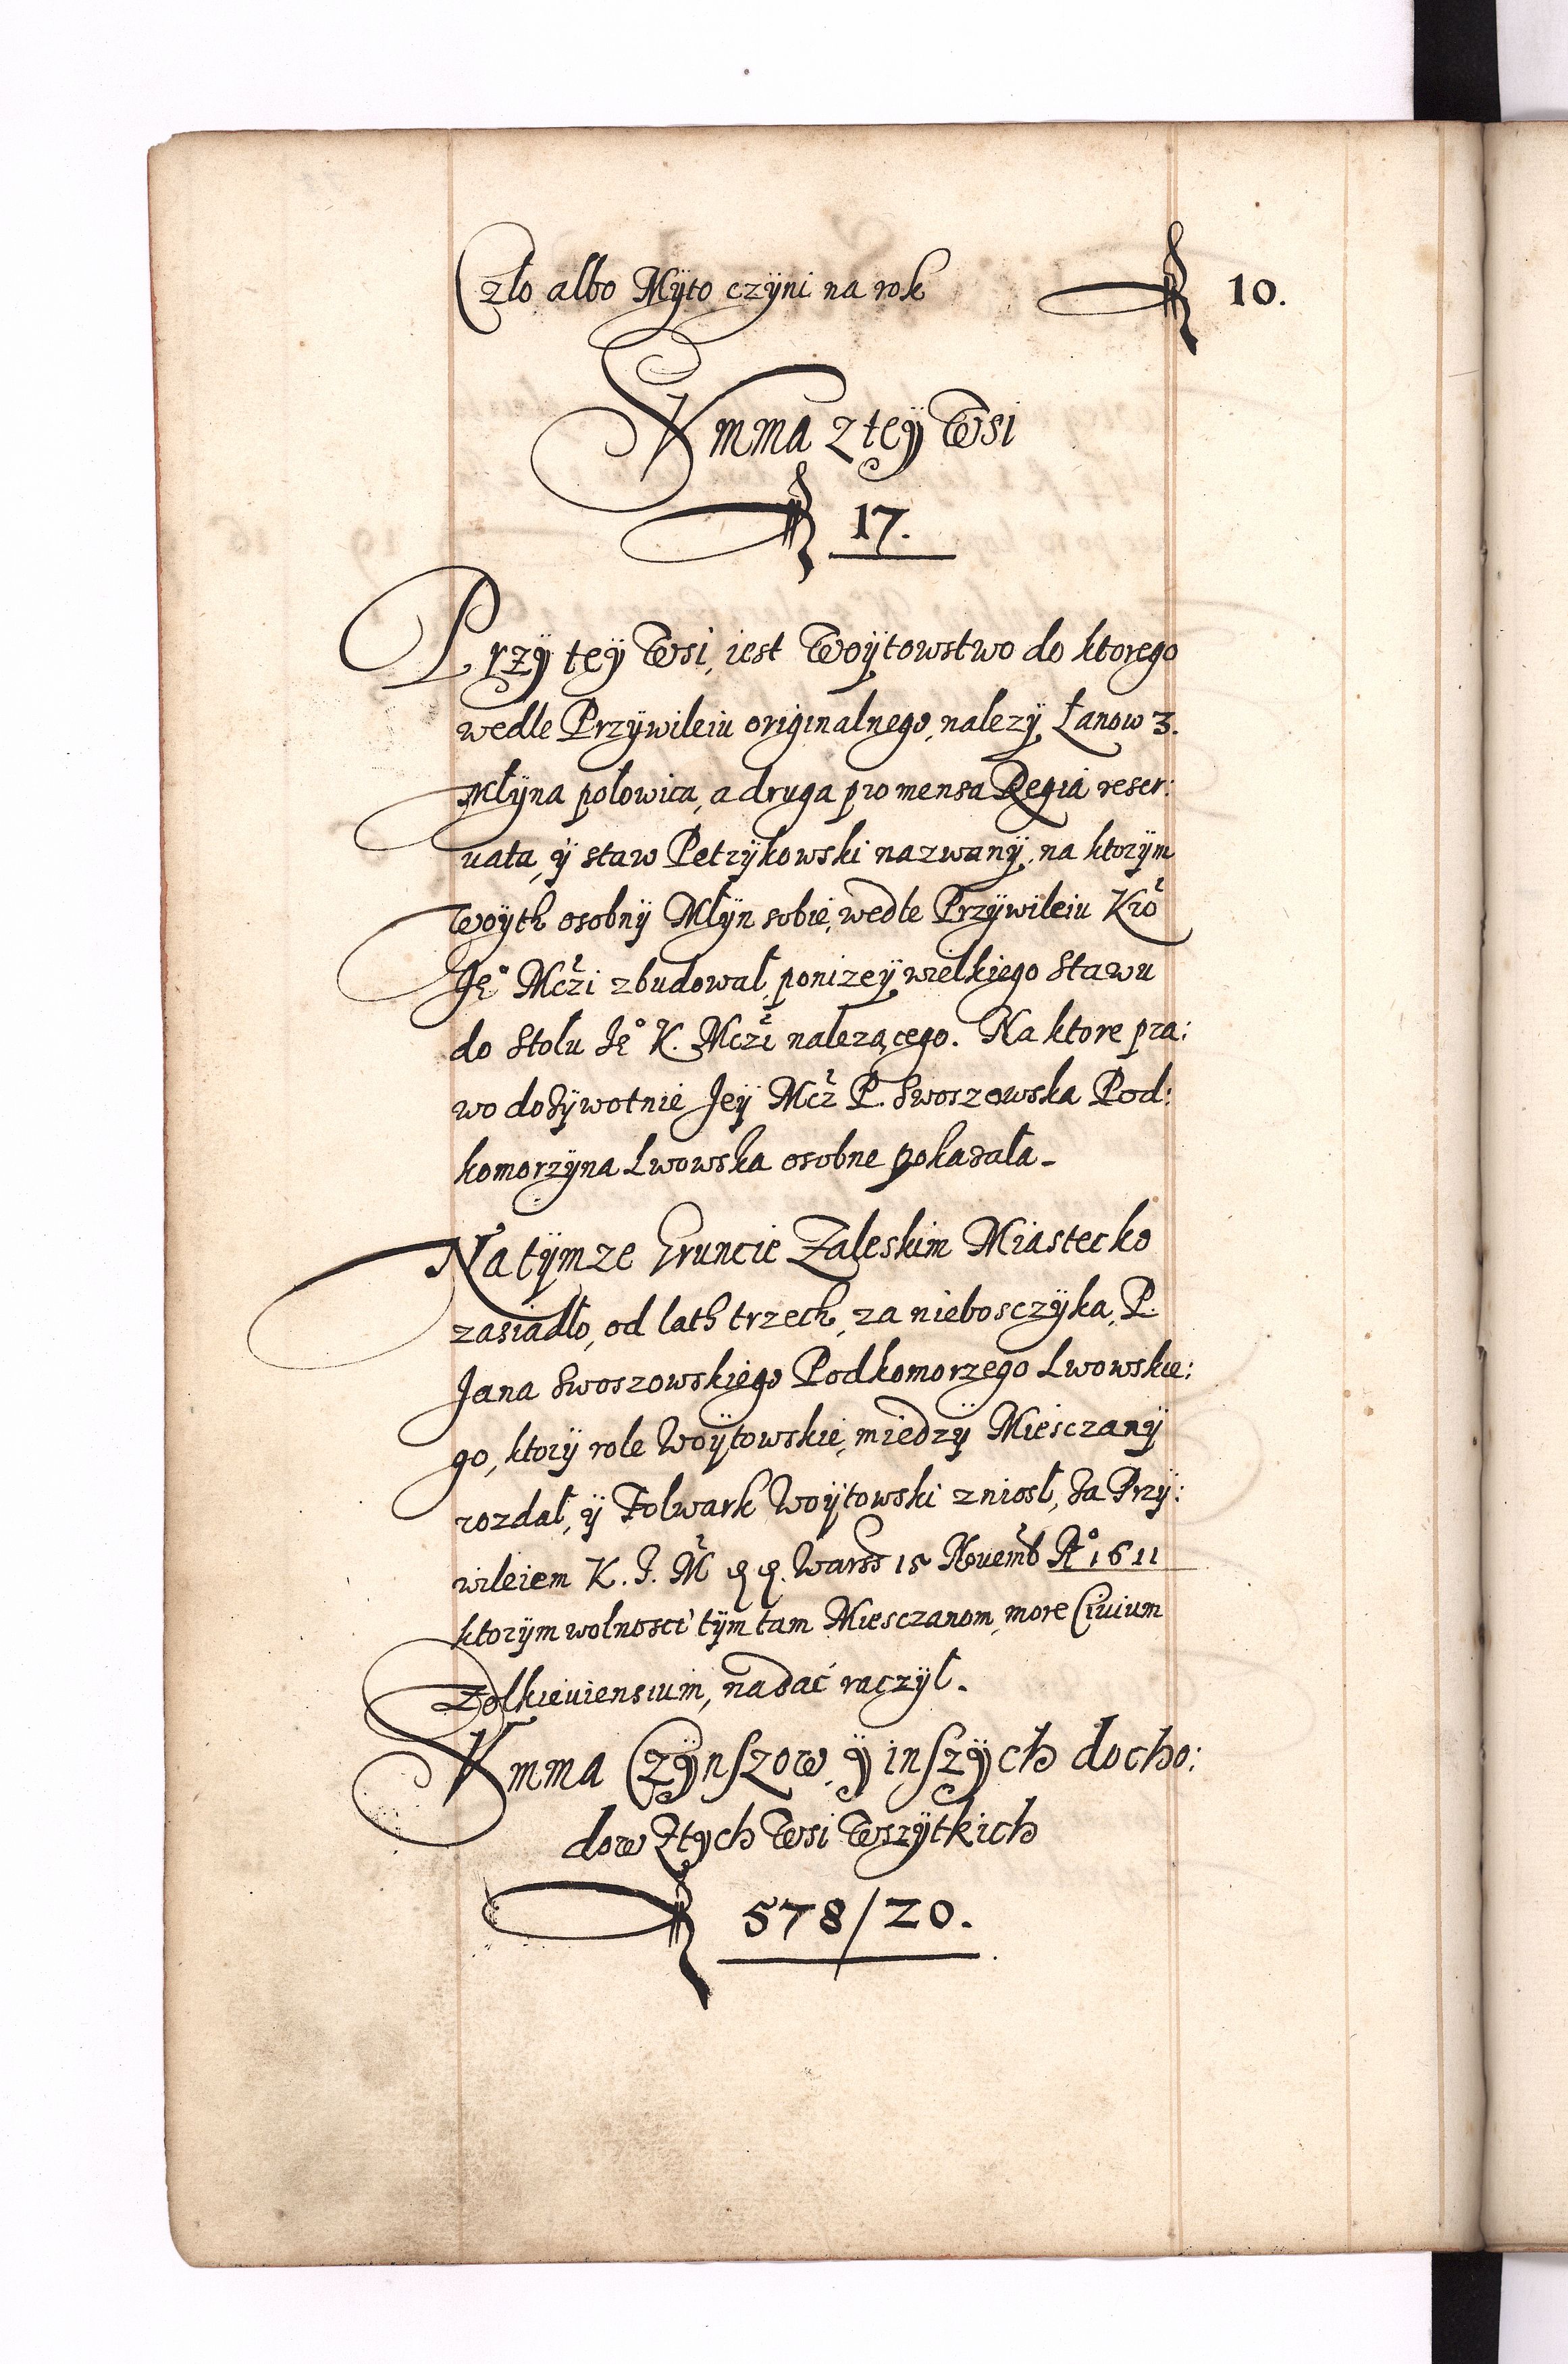 Czło albo Mÿto czÿni na rok fl 10.
Summa z teÿ Wsi
fl 17.
Przÿ teÿ Wsi, iest Woÿtowstwo do ktorego
wedle Przÿwileiu originalnego, nalezÿ Łanow 3.
Młÿna połowica, a druga pro mensa Regia reser:
uata, ÿ staw Petrÿkowski nazwanÿ, na ktorÿm
Woÿth osobnÿ Młÿn sobie, wedle Przÿwileiu Kro
Je° Mczi zbudował, ponizeÿ wielkiego Stawu
do Stołu Je° K. Mczi nalezącego. Na ktore pra:
wo dozÿwotnie Jeÿ Mcz P. Swoszowska Pod:
komorzÿna Lwowska osobne pokazała.
Na tÿmze Gruncie Zaleskim Miastecko
zasiadło, od lath trzech, za niebosczÿka, P.
Jana Swoszowskiego Podkomorzego Lwowskie:
go, ktorÿ role Woÿtowskie, miedzÿ Miesczanÿ
rozdał, ÿ Folwark Woÿtowski zniosł, Za Przÿ:
wileiem K. J. M Warss 15 Nouemb A° 1611
ktorÿm wolnosci tÿm tam Miesczanom, more Ciuium
Zołkieuiensium, nadać raczÿł.
Summa Czÿnszow ÿ inszÿch docho:
dow Ztych Wsi Wszÿtkich
fl 578/20.